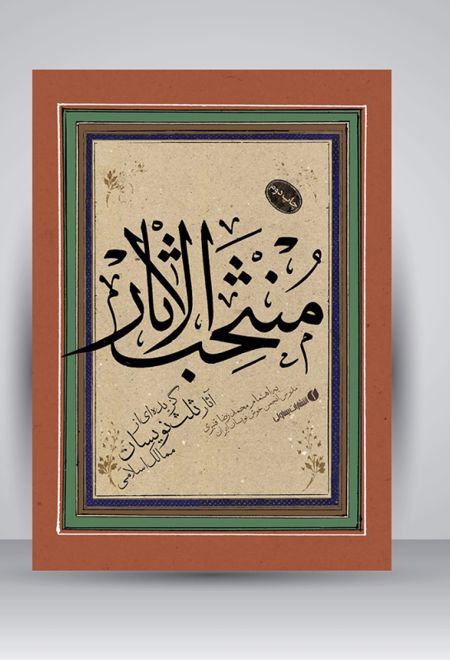 چاپ دوم
مُنْتَخَبُ الآثار
گزیده‌ای از
آثار ثلث‌نویسان
ممالک اسلامی
به اهتمام محمدرضا قنبری
مدرس انجمن خوش‌نویسان ایران